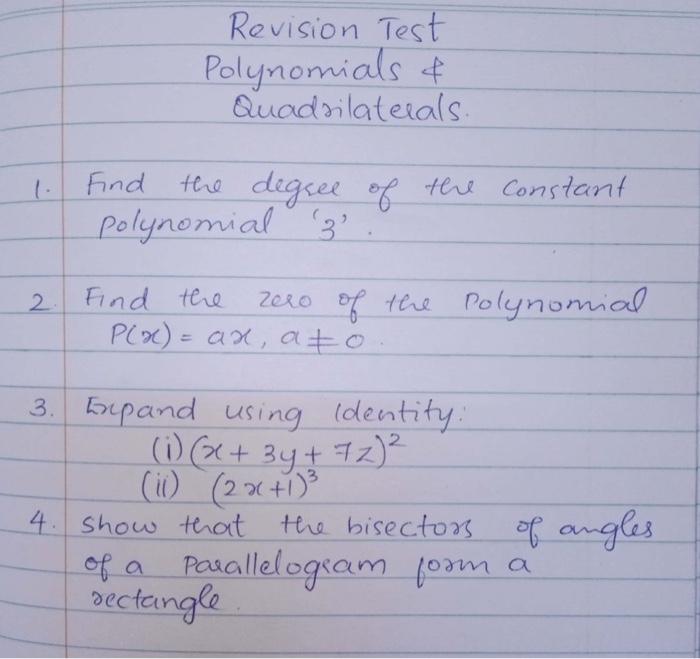 Revision Test
Polynomials &
Quadrilaterals.
1. Find the degree of the constant
polynomial '3'.
2. Find the zero of the polynomial
P(x) = ax, a ≠ 0.
3. Expand using identity:
(i) (x + 3y + 7z)²
(ii) (2x+1)³
4. Show that the bisectors of angles
of a parallelogram form a
rectangle.